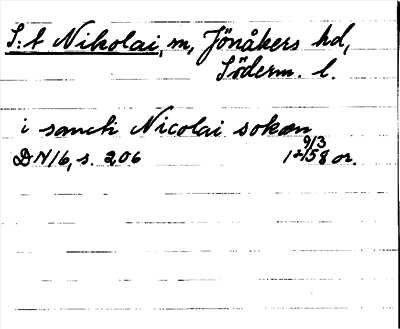 S:t Nikolai, m, Jönåkers hd,
Söderm. l.
i sancti Nicolai sokæn
9/3
DN 16, s. 206 1458 or.